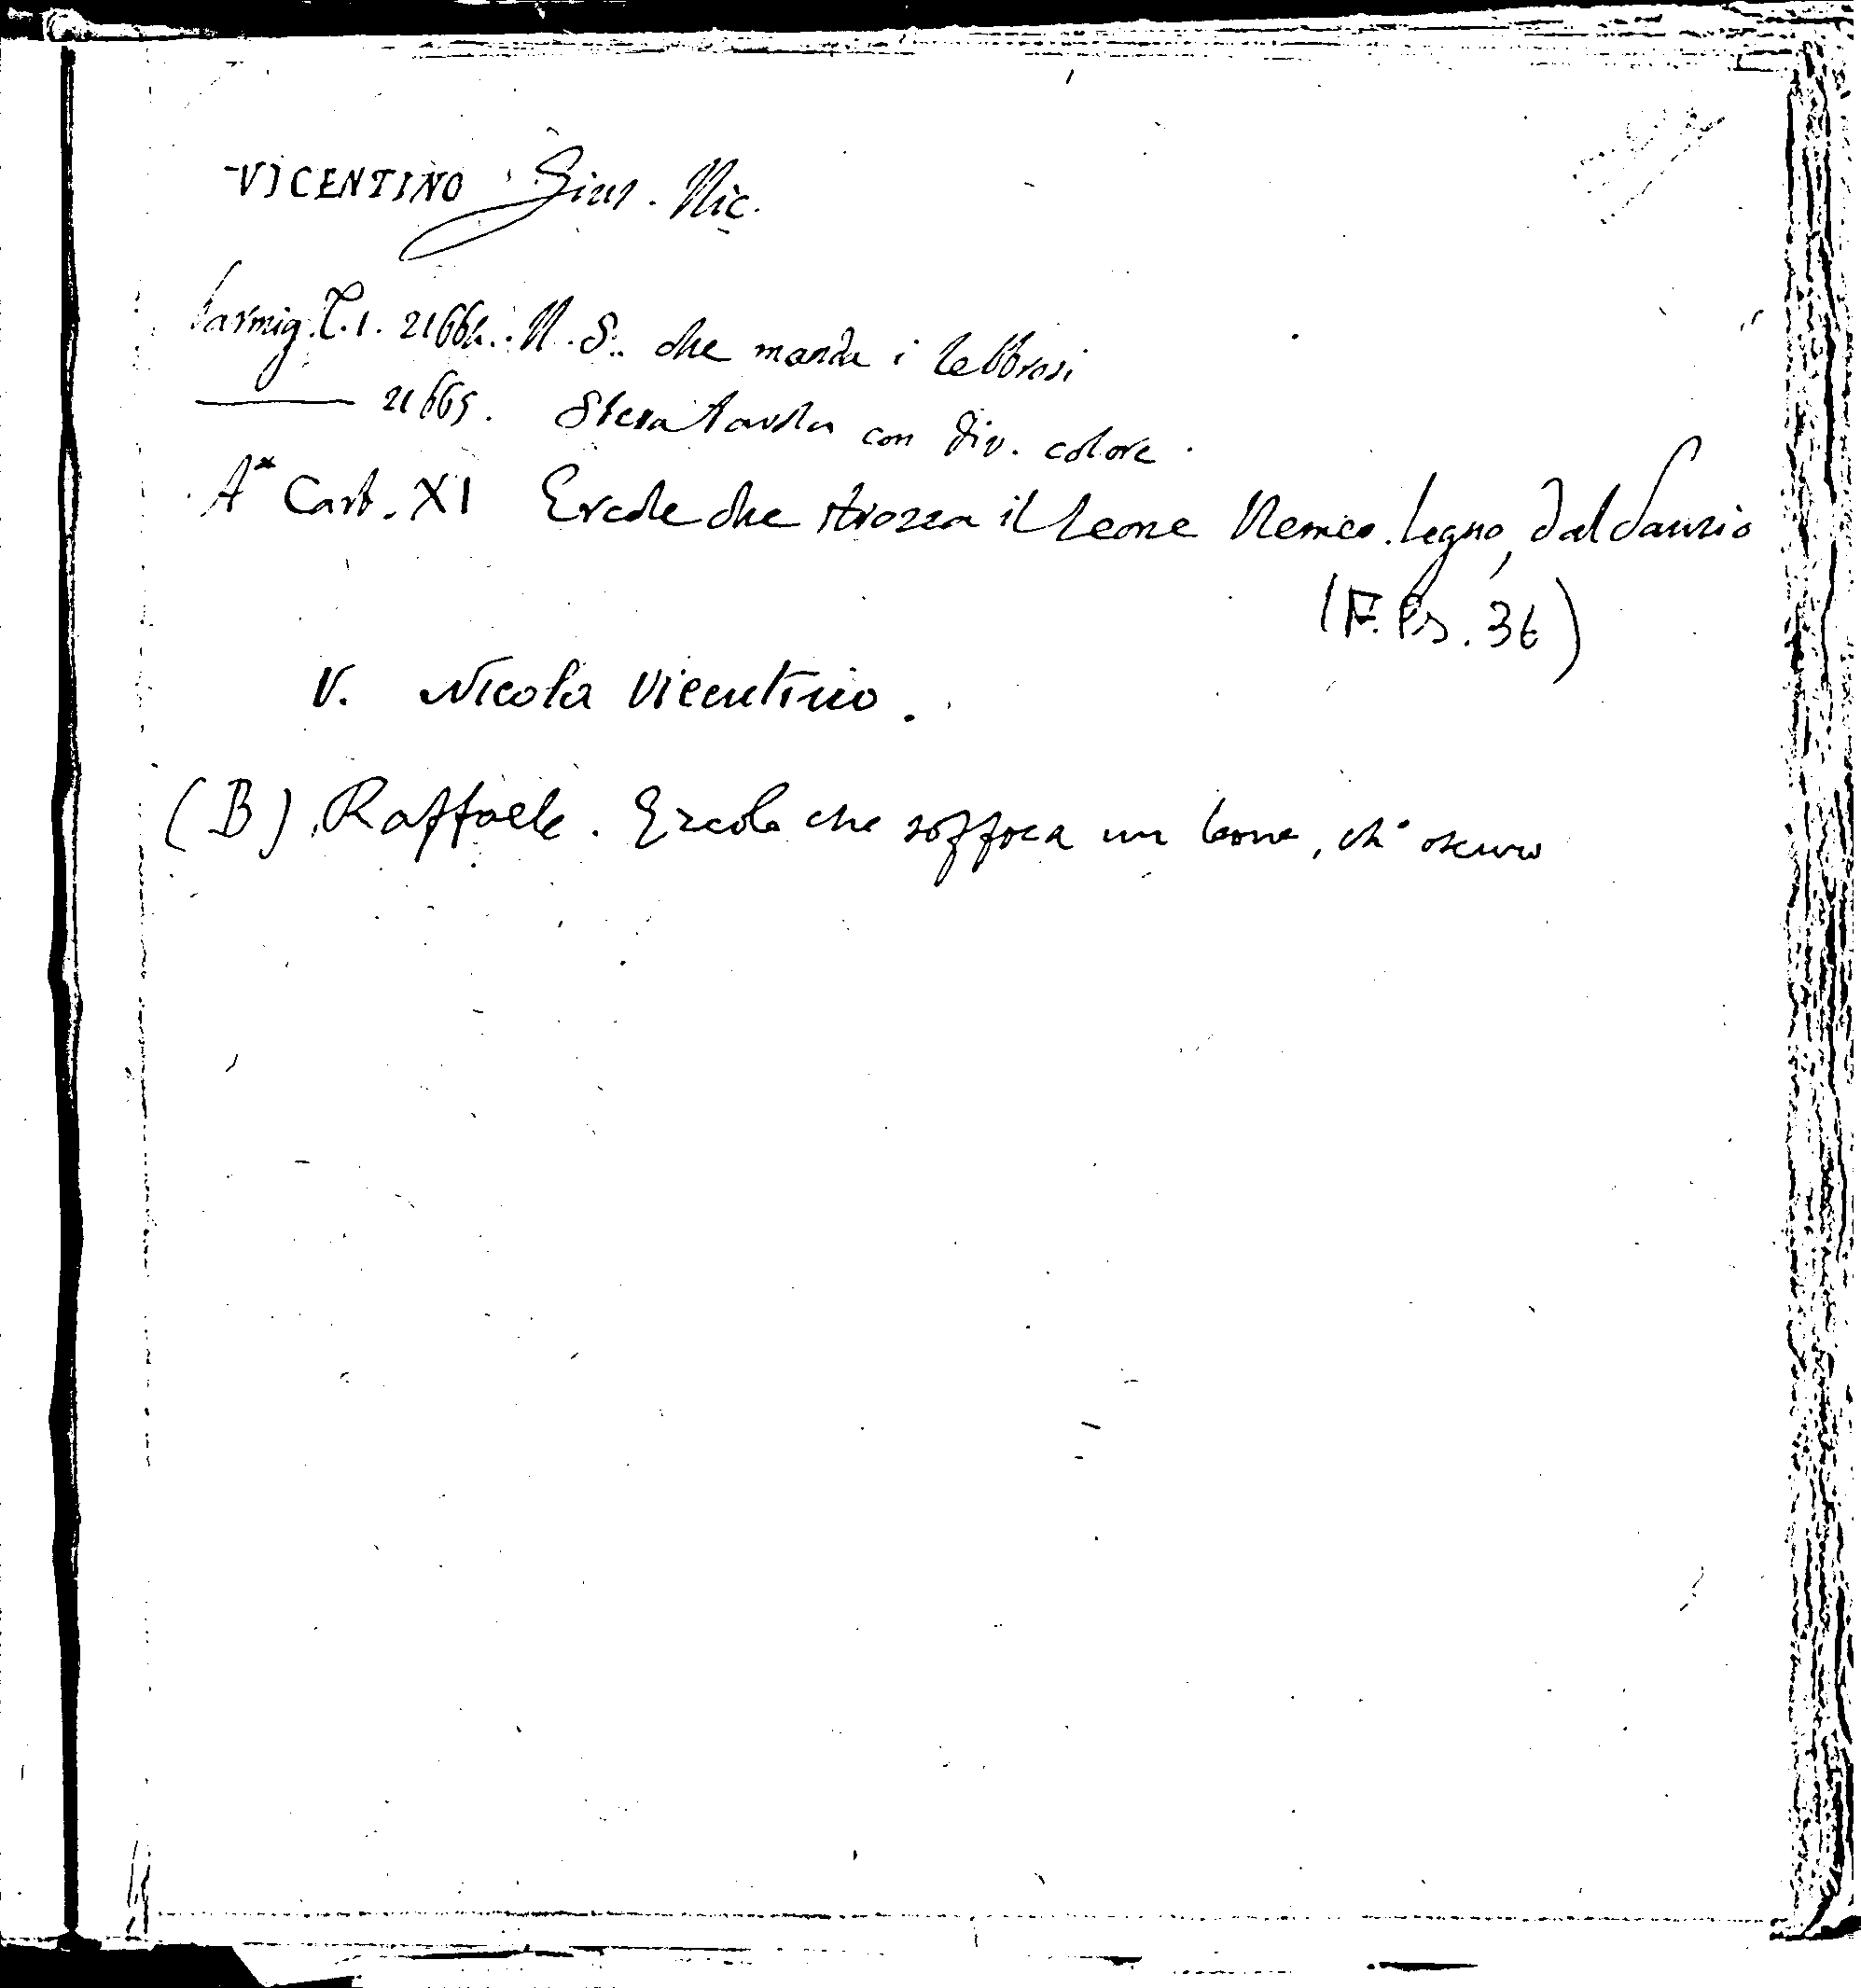 VICENTINO Gius. Nic.
Parmig. T. 1. 21664. N. S. che manda i lebbrosi
21665. Stessa tavola con div. colore.
A* Cart. XI Ercole che strozza il Leone Nemeo. Legno, dal Sanzio
(F. Ps. 36)
V. Nicola Vicentino.
(B) Raffaele. Ercole che soffoca un leone, ch° oscuro